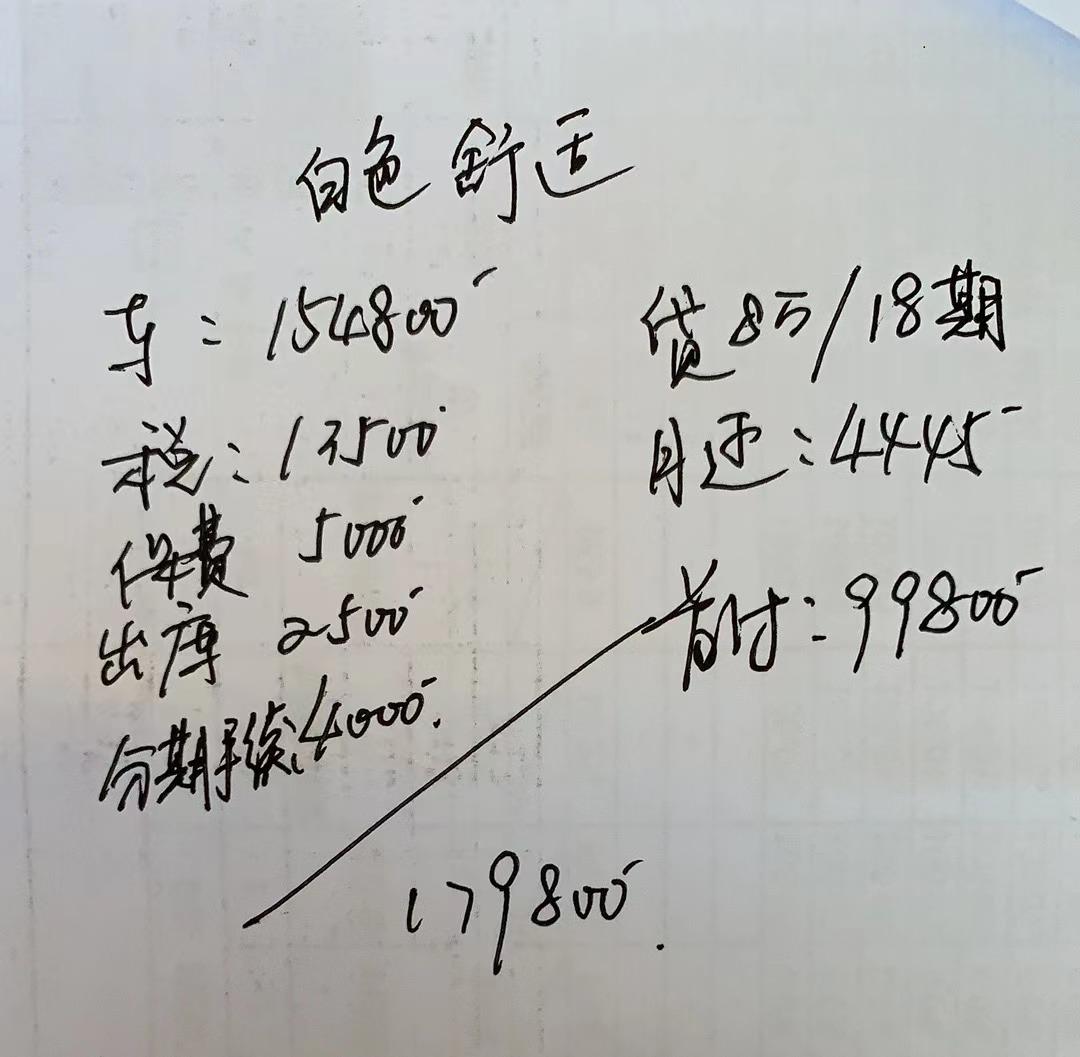 白色舒适
车：154800
税：13500
保费 5000
出库 2500
分期手续4000.
179800.
贷8万/18期
月还：4445
首付：99800